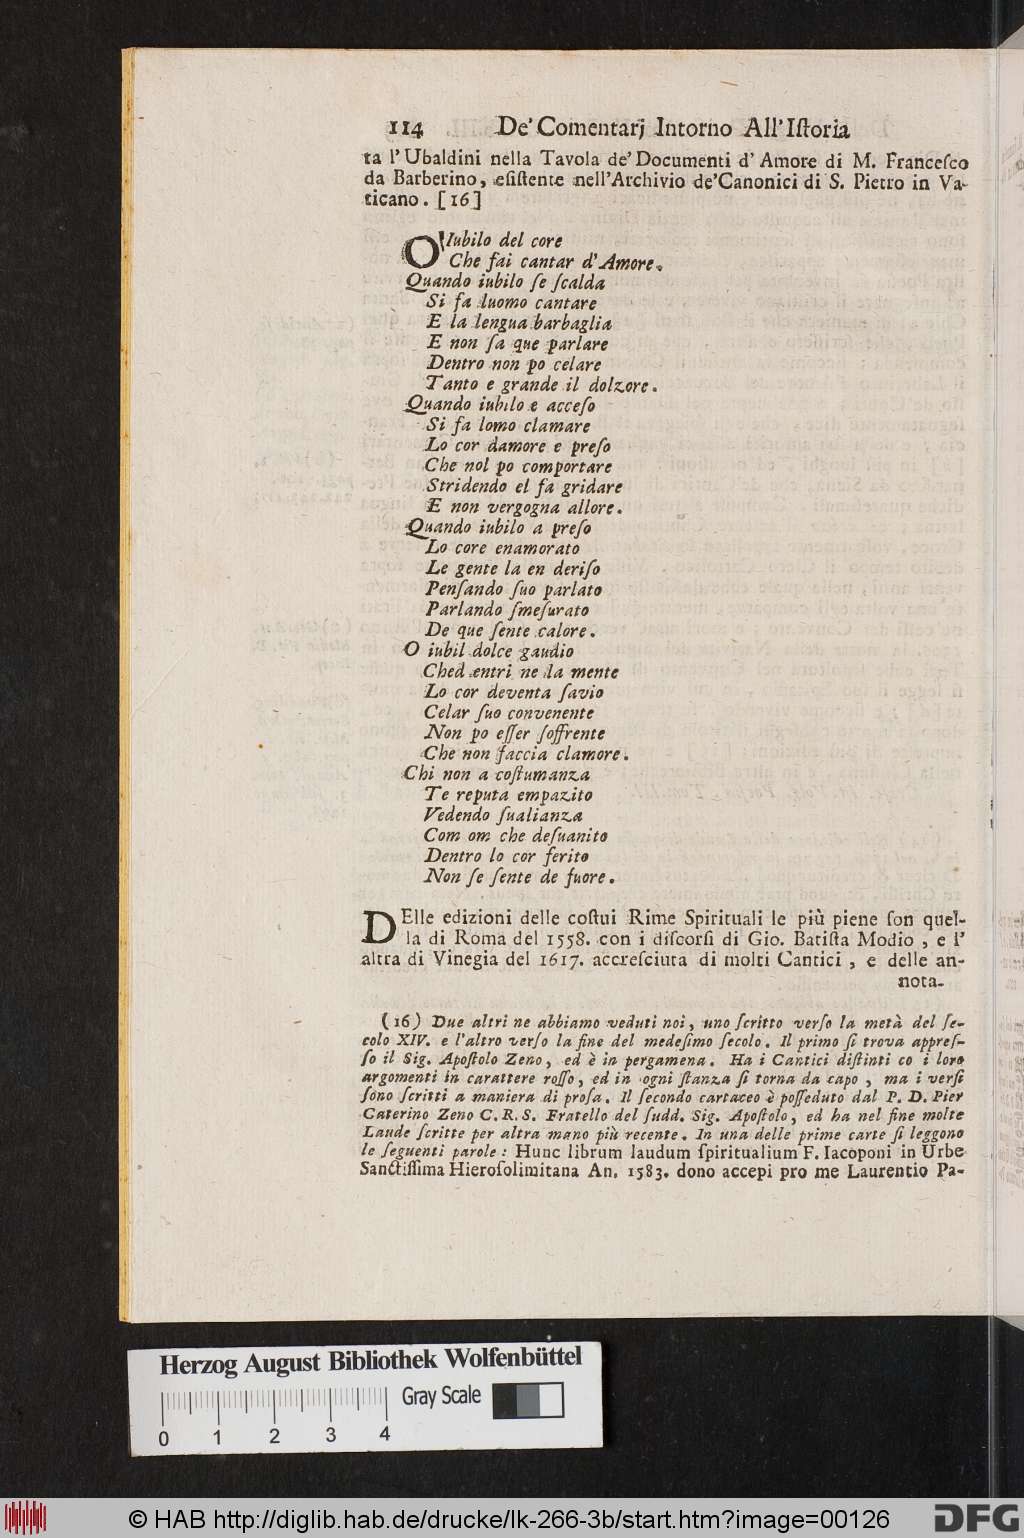 114 De' Comentarj Intorno All'Iſtoria
ta l'Ubaldini nella Tavola de' Documenti d'Amore di M. Franceſco
da Barberino, eſiſtente nell'Archivio de' Canonici di S. Pietro in Va-
ticano. [16]
O'Iubilo del core
Che fai cantar d'Amore.
Quando iubilo ſe ſcalda
Si fa luomo cantare
E la lengua barbaglia
E non ſa que parlare
Dentro non po celare
Tanto e grande il dolzore.
Quando iubilo e acceſo
Si fa lomo clamare
Lo cor damore e preſo
Che nol po comportare
Stridendo el fa gridare
E non vergogna allore.
Quando iubilo a preſo
Lo core enamorato
Le gente la en deriſo
Penſando ſuo parlato
Parlando ſmeſurato
De que ſente calore.
O iubil dolce gaudio
Ched entri ne la mente
Lo cor deventa ſavio
Celar ſuo convenente
Non po eſſer ſoffrente
Che non faccia clamore.
Chi non a coſtumanza
Te reputa empazito
Vedendo ſualianza
Com om che deſuanito
Dentro lo cor ferito
Non ſe ſente de fuore.
DElle edizioni delle coſtui Rime Spirituali le più piene ſon quel-
la di Roma del 1558. con i diſcorſi di Gio. Batiſta Modio, e l'
altra di Vinegia del 1617. accreſciuta di molti Cantici, e delle an-
nota-
(16) Due altri ne abbiamo veduti noi, uno ſcritto verſo la metà del ſe-
colo XIV. e l'altro verſo la fine del medeſimo ſecolo. Il primo ſi trova appreſ-
ſo il Sig. Apoſtolo Zeno, ed è in pergamena. Ha i Cantici diſtinti co i loro
argomenti in carattere roſſo, ed in ogni ſtanza ſi torna da capo, ma i verſi
ſono ſcritti a maniera di proſa. Il ſecondo cartaceo è poſſeduto dal P. D. Pier
Caterino Zeno C. R. S. Fratello del ſudd. Sig. Apoſtolo, ed ha nel fine molte
Laude ſcritte per altra mano più recente. In una delle prime carte ſi leggono
le ſeguenti parole: Hunc librum laudum ſpiritualium F. Iacoponi in Urbe
Sanctiſſima Hieroſolimitana An. 1583. dono accepi pro me Laurentio Pa-
Herzog August Bibliothek Wolfenbüttel
Gray Scale
0 1 2 3 4
© HAB http://diglib.hab.de/drucke/lk-266-3b/start.htm?image=00126
DFG